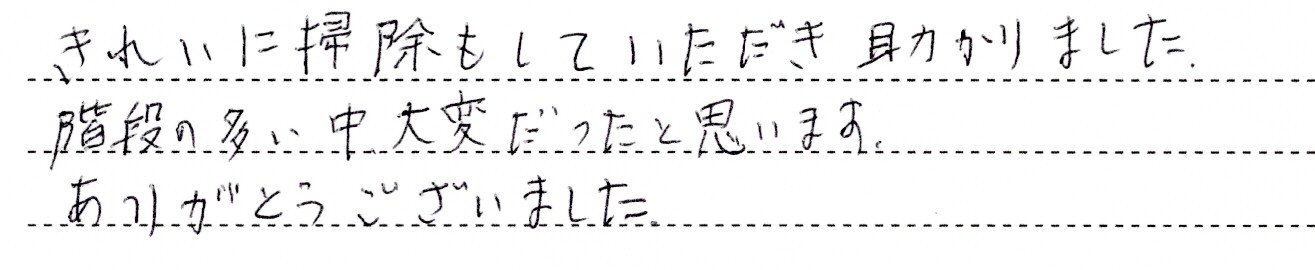 きれいに掃除もしていただき助かりました.
階段の多い中大変だったと思います.
ありがとうございました.